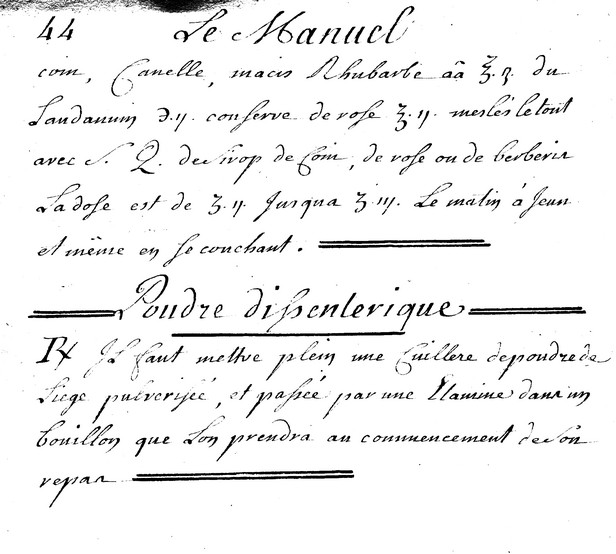 44 Le Manuel
coin, Canelle, macis Rhubarbe āā ʒ.ij. du
Laudanum ℈.ij. conserve de rose ʒ.ij. meslés le tout
avec S. Q. de sirop de Coin, de rose ou de berberis
La dose est de ʒ.ij. Jusqua ʒ.iij. Le matin à Jeun
et même en se couchant.
Poudre dissenterique
℞ JL faut mettre plein une Cuillere de poudre de
Liege pulverisée, et passée par une Etamine dans un
bouillon que Lon prendra au commencement de Son
repas